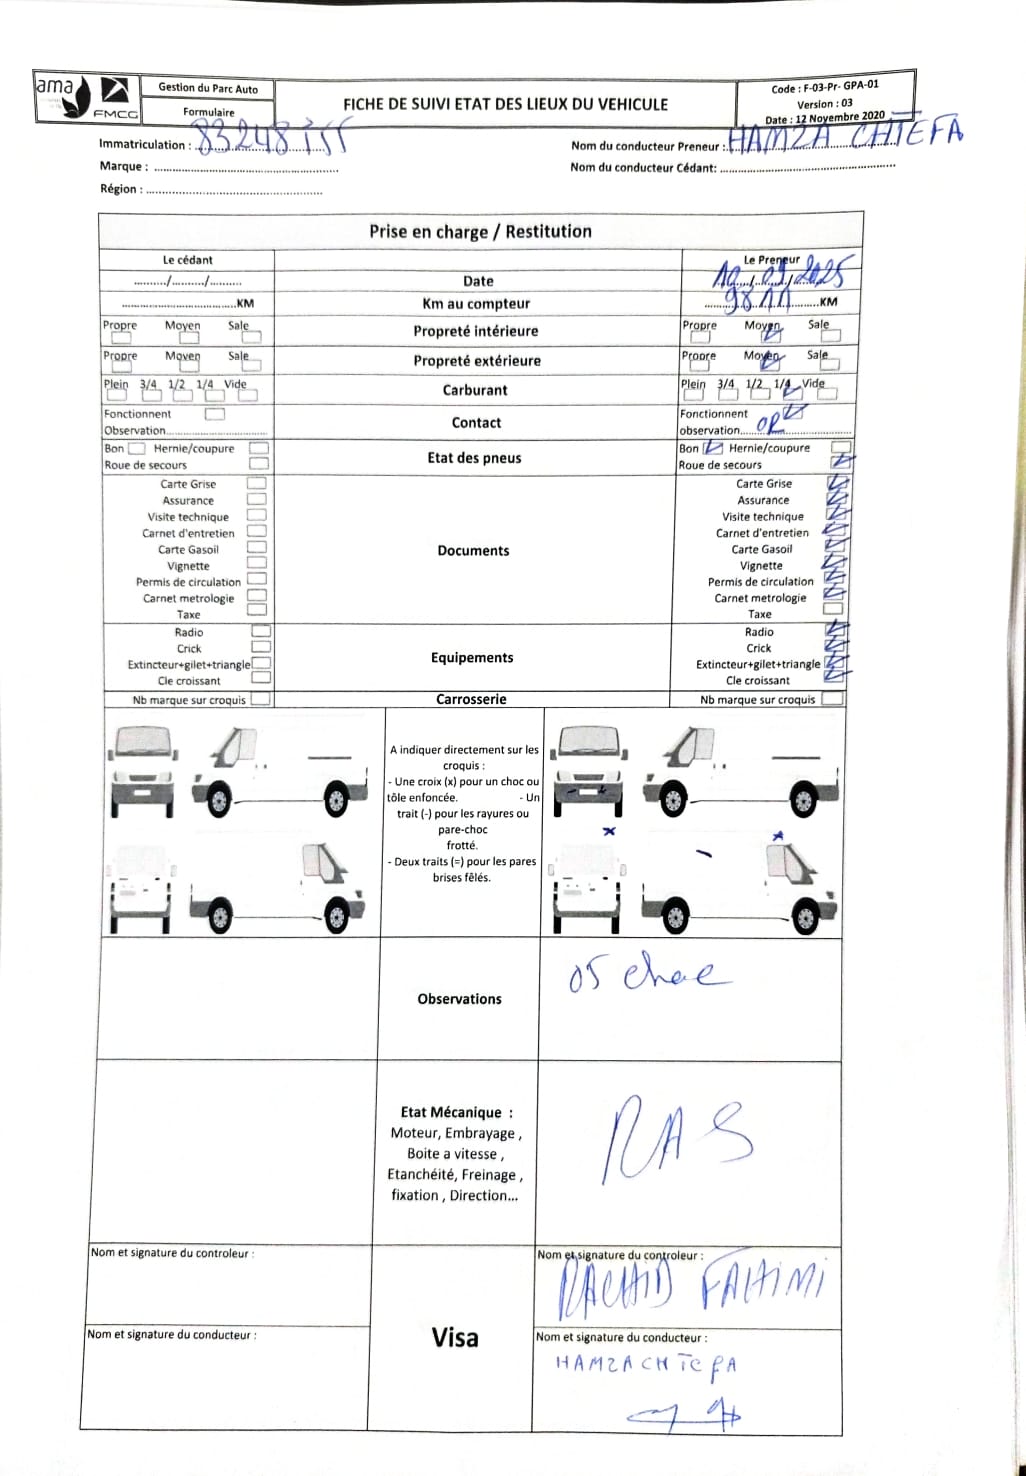 ama
FMCG
Gestion du Parc Auto
Formulaire
FICHE DE SUIVI ETAT DES LIEUX DU VEHICULE
Code : F-03-Pr- GPA-01
Version : 03
Date : 12 Novembre 2020
Immatriculation : 83248
Nom du conducteur Preneur : HAMZA CHTEFA
Marque :
Nom du conducteur Cédant:
Région :
Prise en charge / Restitution
Le cédant
Le Preneur
....../....../......
Date
10/09/2025
KM
Km au compteur
9811 KM
Propre Moyen Sale
Propreté intérieure
Propre Moyen Sale
Propre Moyen Sale
Propreté extérieure
Propre Moyen Sale
Plein 3/4 1/2 1/4 Vide
Carburant
Plein 3/4 1/2 1/4 Vide
Fonctionnent
Observation
Contact
Fonctionnent
observation
Bon Hernie/coupure
Roue de secours
Etat des pneus
Bon Hernie/coupure
Roue de secours
Carte Grise
Assurance
Visite technique
Carnet d'entretien
Carte Gasoil
Vignette
Permis de circulation
Carnet metrologie
Taxe
Documents
Carte Grise
Assurance
Visite technique
Carnet d'entretien
Carte Gasoil
Vignette
Permis de circulation
Carnet metrologie
Taxe
Radio
Crick
Extincteur+gilet+triangle
Cle croissant
Equipements
Radio
Crick
Extincteur+gilet+triangle
Cle croissant
Nb marque sur croquis
Carrosserie
Nb marque sur croquis
A indiquer directement sur les
croquis :
- Une croix (x) pour un choc ou
tôle enfoncée. - Un
trait (-) pour les rayures ou
pare-choc
frotté.
- Deux traits (=) pour les pares
brises fêlés.
Observations
05 choc
Etat Mécanique :
Moteur, Embrayage ,
Boite a vitesse ,
Etanchéité, Freinage ,
fixation , Direction...
RAS
Nom et signature du controleur :
Nom et signature du controleur :
RACHID FAHIMI
Visa
Nom et signature du conducteur :
Nom et signature du conducteur :
HAMZA CHTEFA